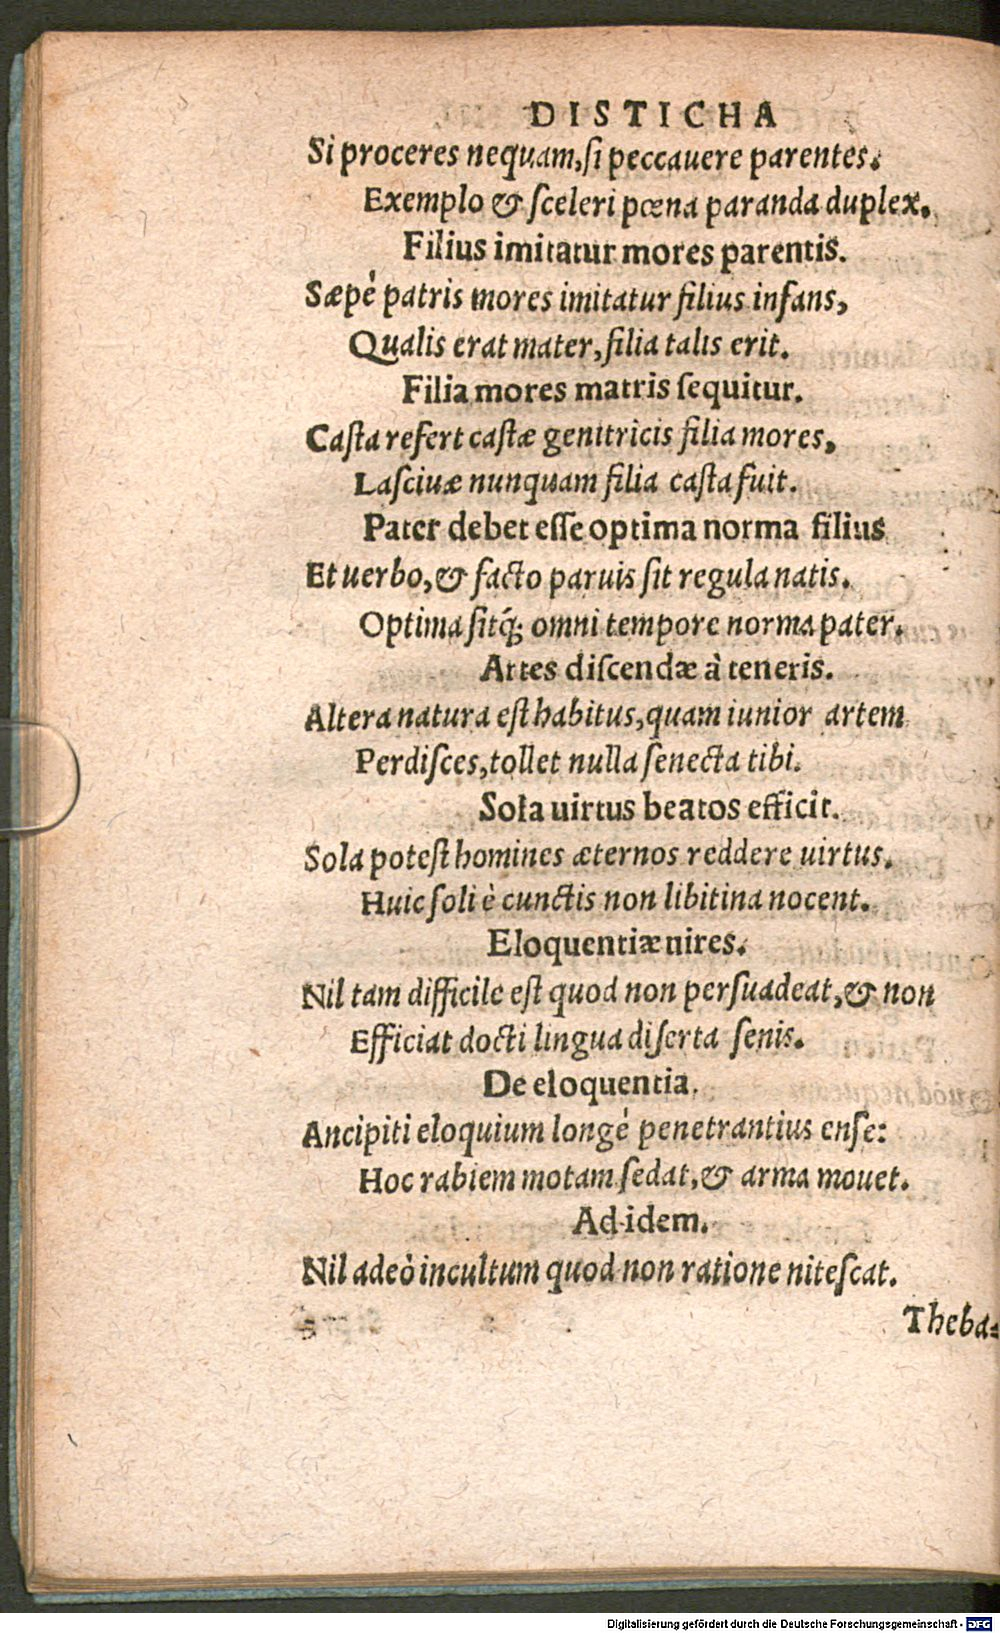 DISTICHA
Si proceres nequam, ſi peccauere parentes.
Exemplo & ſceleri pœna paranda duplex.
Filius imitatur mores parentis.
Sæpè patris mores imitatur filius infans,
Qualis erat mater, filia talis erit.
Filia mores matris ſequitur.
Caſta refert caſtæ genitricis filia mores,
Laſciuæ nunquam filia caſta fuit.
Pater debet eſſe optima norma filius
Et uerbo, & facto paruis ſit regula natis.
Optima ſitq́; omni tempore norma pater.
Artes diſcendæ à teneris.
Altera natura eſt habitus, quam iunior artem
Perdiſces, tollet nulla ſenecta tibi.
Sola uirtus beatos efficit.
Sola poteſt homines æternos reddere uirtus.
Huic ſoli è cunctis non libitina nocent.
Eloquentiæ uires.
Nil tam difficile eſt quod non perſuadeat, & non
Efficiat docti lingua diſerta ſenis.
De eloquentia.
Ancipiti eloquium longè penetrantius enſe:
Hoc rabiem motam ſedat, & arma mouet.
Ad idem.
Nil adeò incultum quod non ratione niteſcat.
Theba-
Digitalisierung gefördert durch die Deutsche Forschungsgemeinschaft - DFG